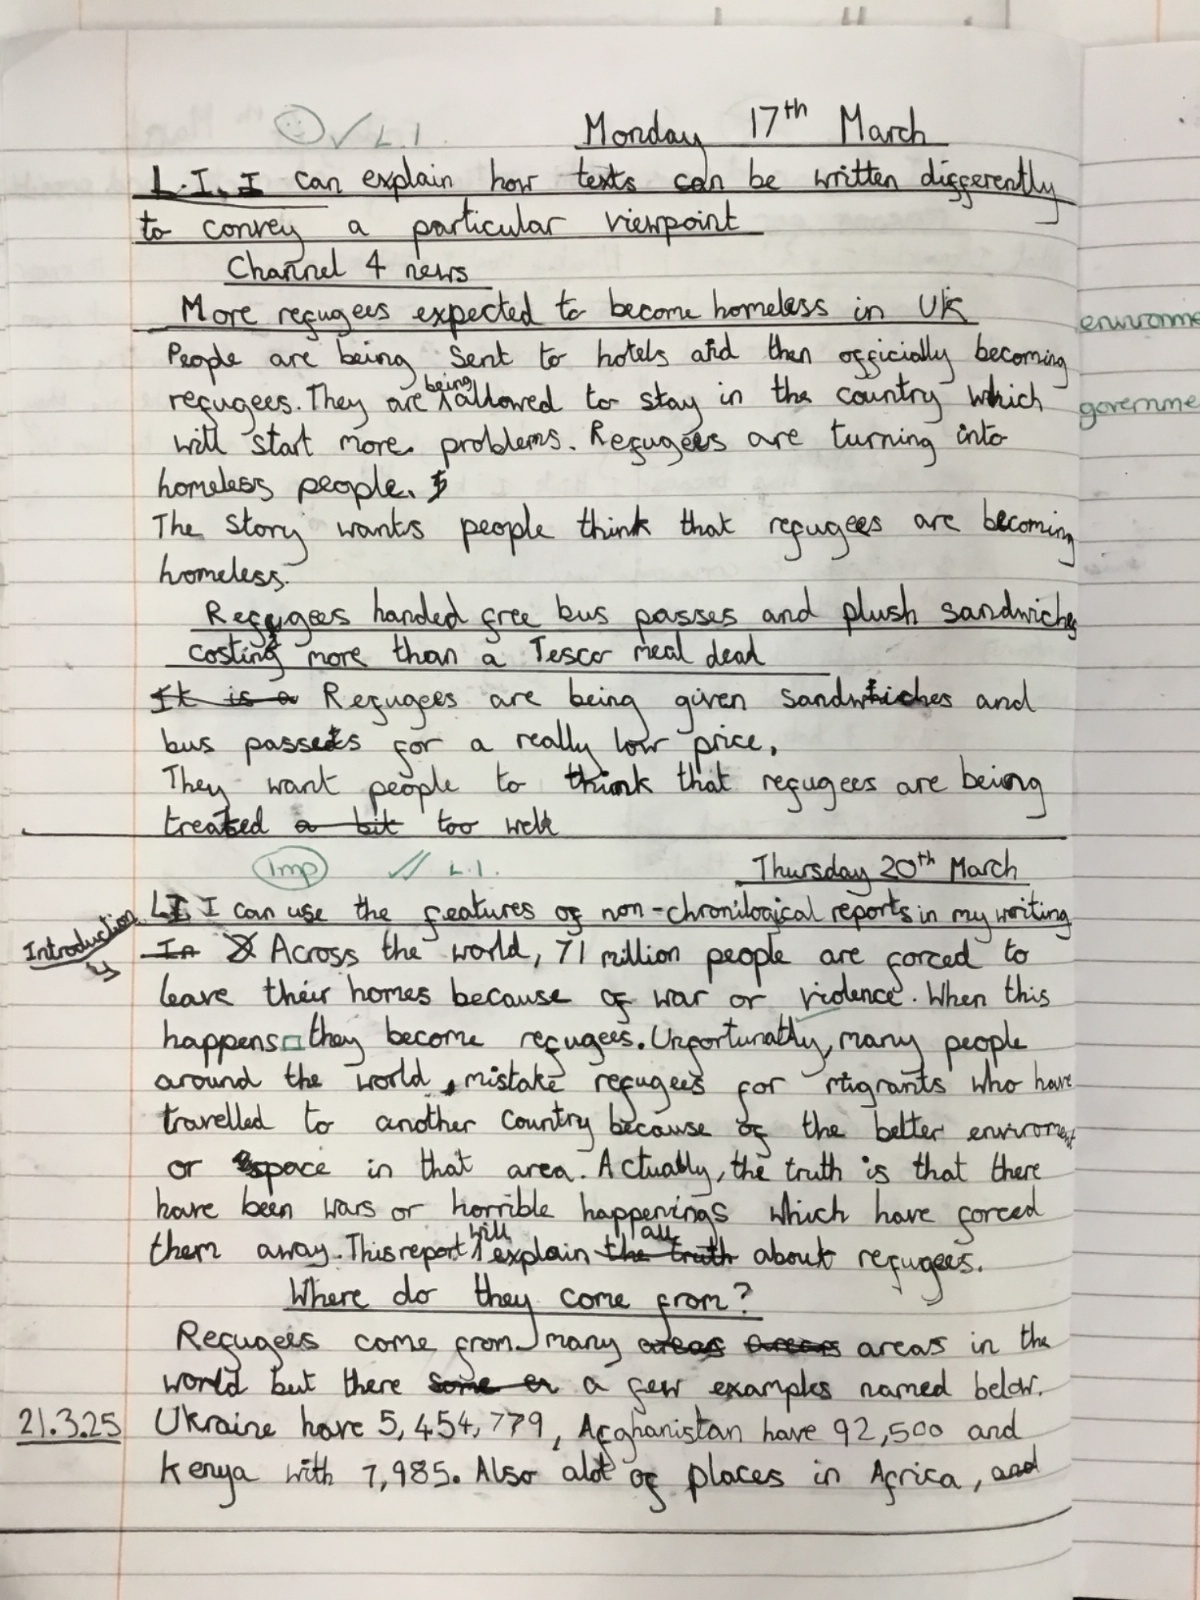 ☺ ✓ L.I.
Monday 17th March
L.I. I can explain how texts can be written differently
to convey a particular viewpoint
Channel 4 news
More refugees expected to become homeless in UK
People are being sent to hotels and then officially becoming
refugees. They are being allowed to stay in the country which
will start more problems. Refugees are turning into
homeless people.
The story wants people think that refugees are becoming
homeless.
Refugees handed free bus passes and plush sandwiches
costing more than a Tesco meal dead
It is a Refugees are being given sandwiches and
bus passes for a really low price.
They want people to think that refugees are being
treated a bit too well
Imp ✓✓ L.I.
Thursday 20th March
L.I. I can use the features of non-chronilogical reports in my writing
Introduction
In Across the world, 71 million people are forced to
leave their homes because of war or violence. When this
happens they become refugees. Unfortunatly, many people
around the world, mistake refugees for migrants who have
travelled to another country because of the better enviroment
or space in that area. Actually, the truth is that there
have been wars or horrible happenings which have forced
them away. This report will explain the truth all about refugees.
Where do they come from?
Refugees come from many areas areas areas in the
world but there some er a few examples named below.
21.3.25
Ukraine have 5,454,779, Afghanistan have 92,500 and
Kenya with 7,985. Also alot of places in Africa, and
environme
governme